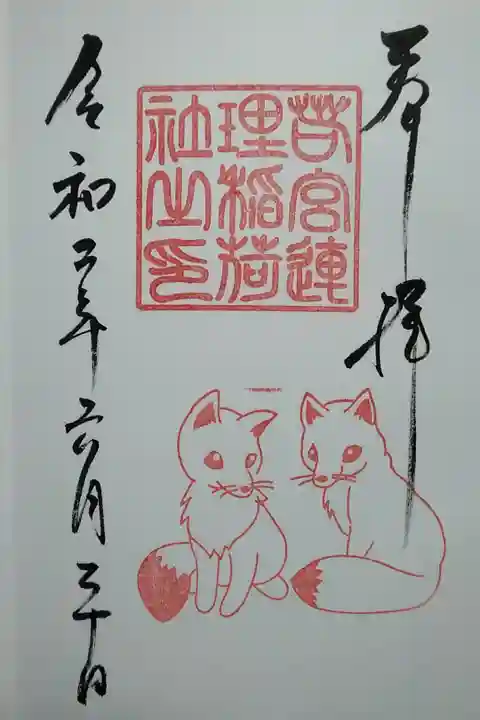 奉拝
若宮連
理稲荷
社之印
令和二年六月三十日